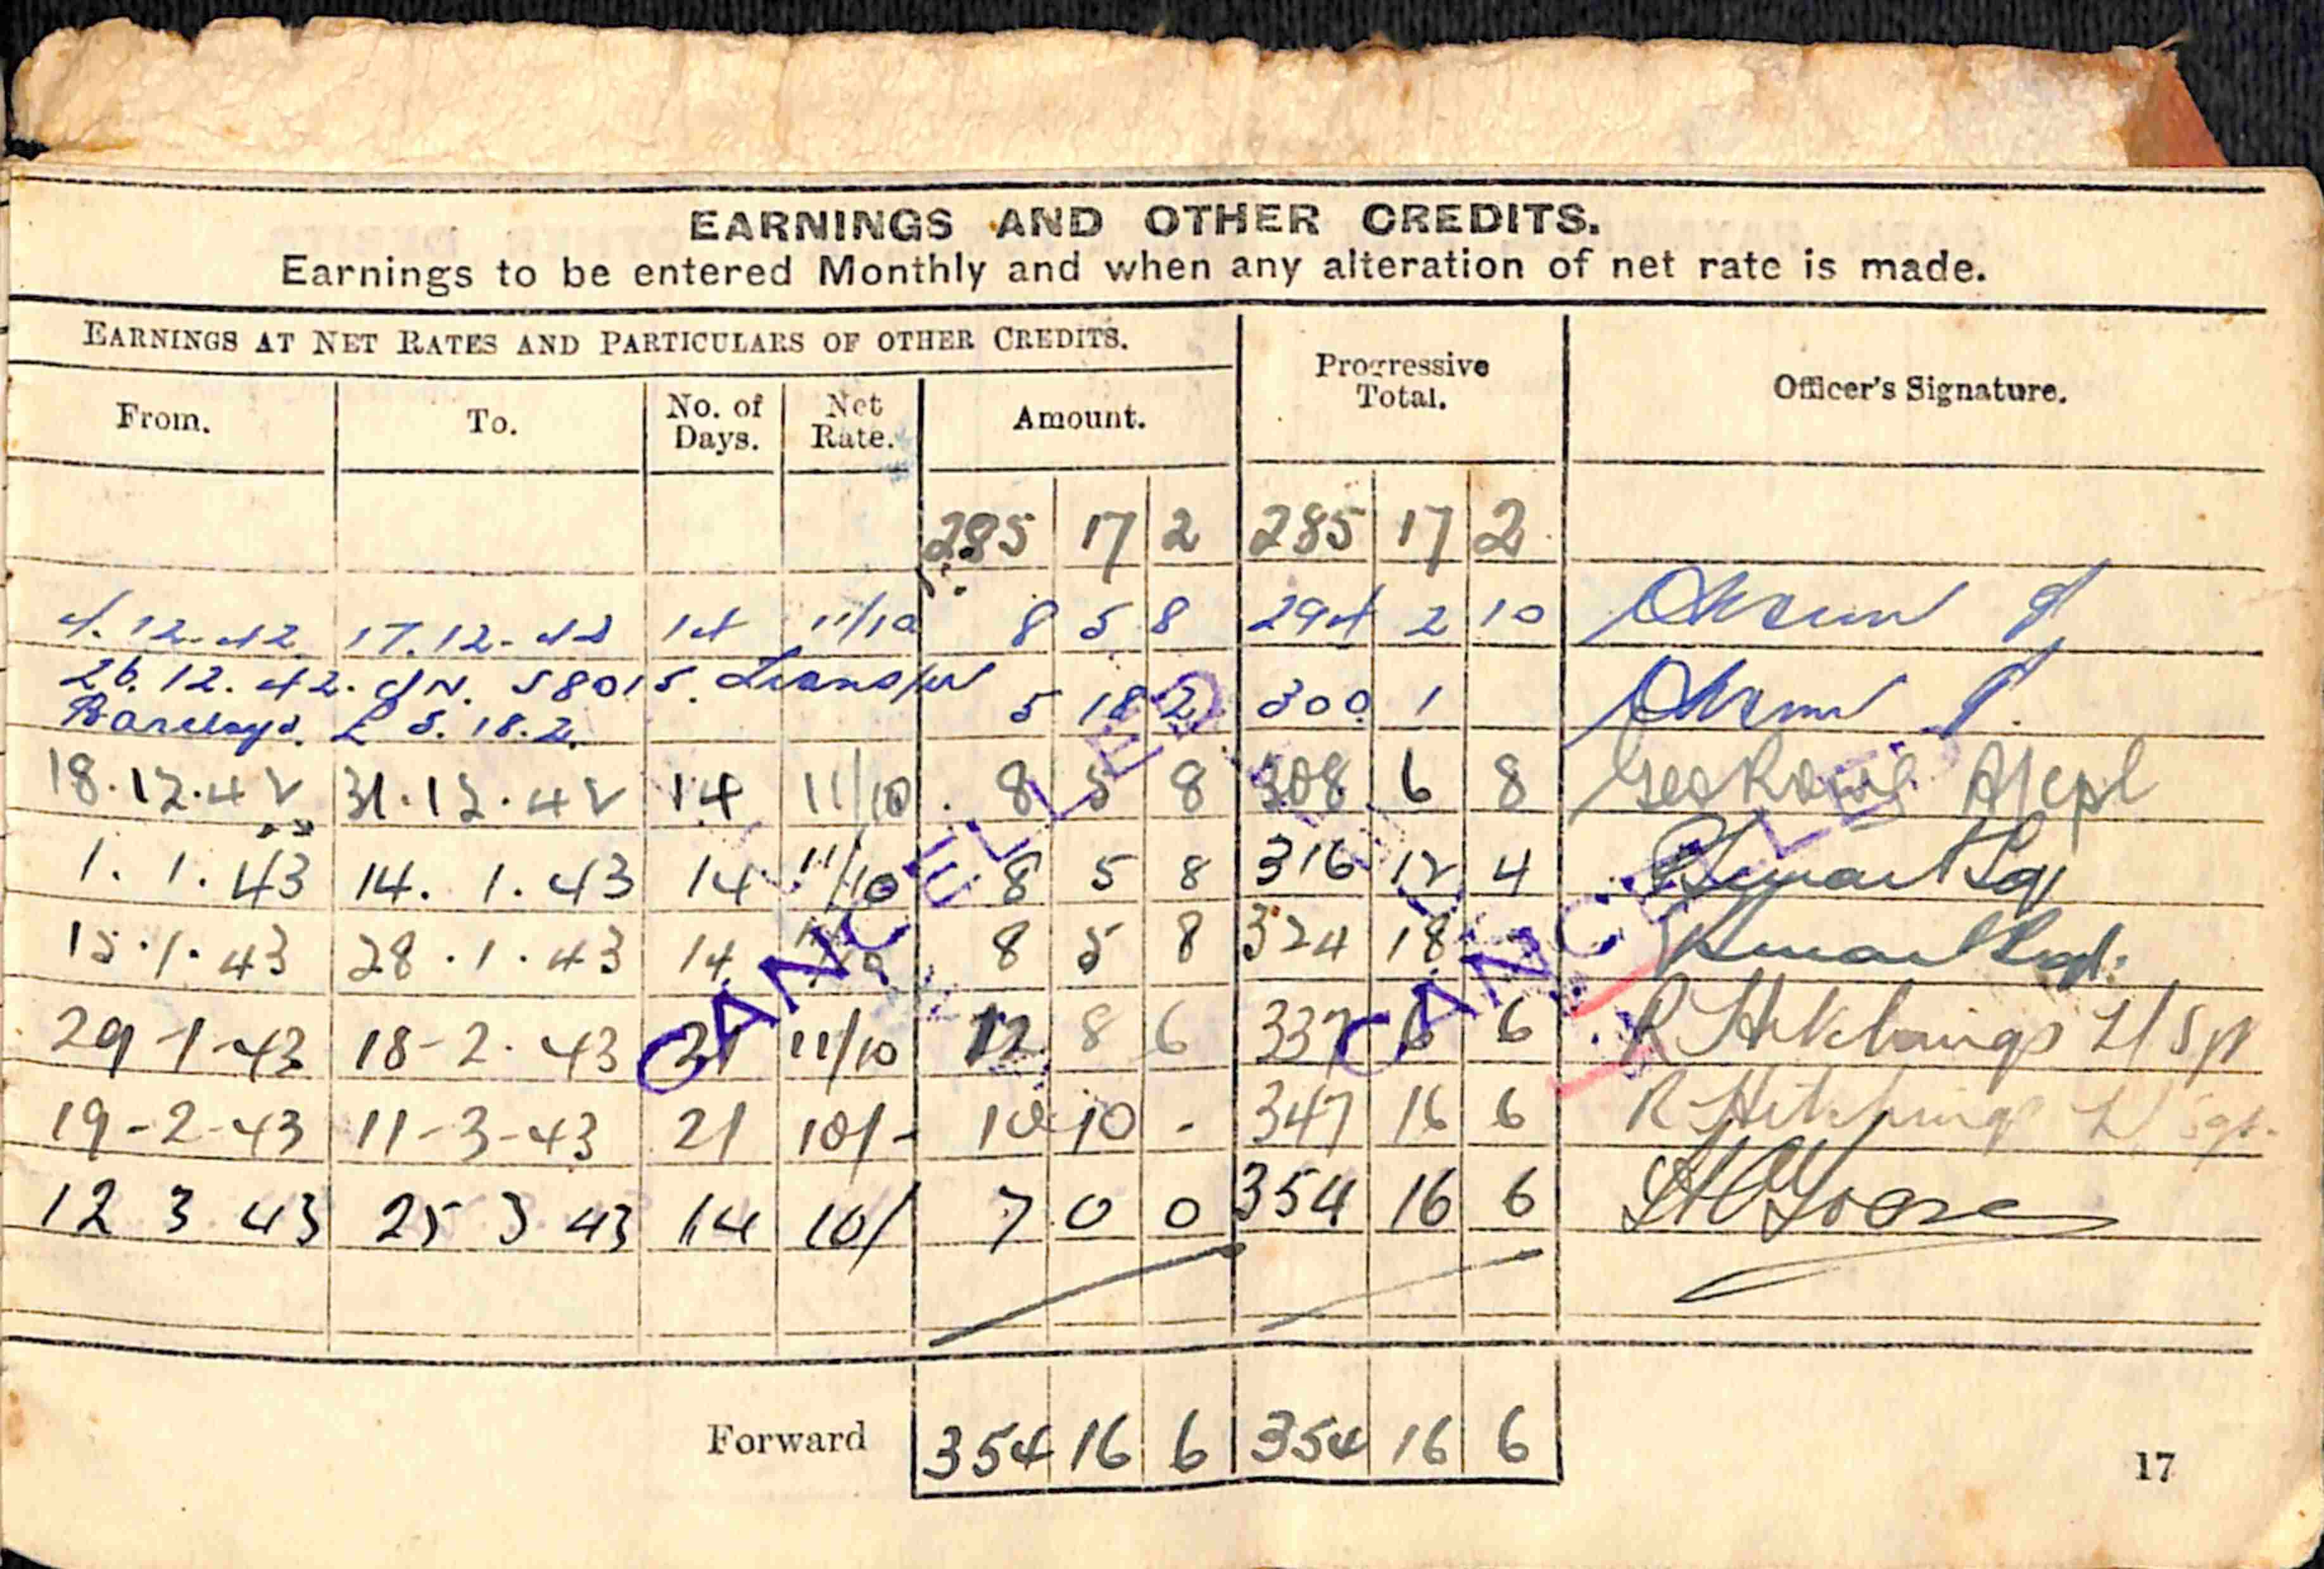 EARNINGS AND OTHER CREDITS.
Earnings to be entered Monthly and when any alteration of net rate is made.
EARNINGS AT NET RATES AND PARTICULARS OF OTHER CREDITS.
Progressive Total.
Officer's Signature.
From. To. No. of Days. Net Rate. Amount.
285 17 2 285 17 2
4.12.42 17.12.42 14 11/10 8 5 8 294 2 10
26.12.42. 5801 5. Transfer
Barclays £5.18.2. 5 18 2 300 1
18.12.42 31.12.42 14 11/10 8 5 8 308 6 8
1.1.43 14.1.43 14 11/10 8 5 8 316 12 4
15.1.43 28.1.43 14 8 5 8 324 18
29-1-43 18-2.43 21 11/10 12 8 6 337 6 6
19-2-43 11-3-43 21 10/- 10 10 - 347 16 6
12 3 43 25 3 43 14 10/ 7 0 0 354 16 6
CANCELLED
CANCELLED
Forward 354 16 6 354 16 6
17